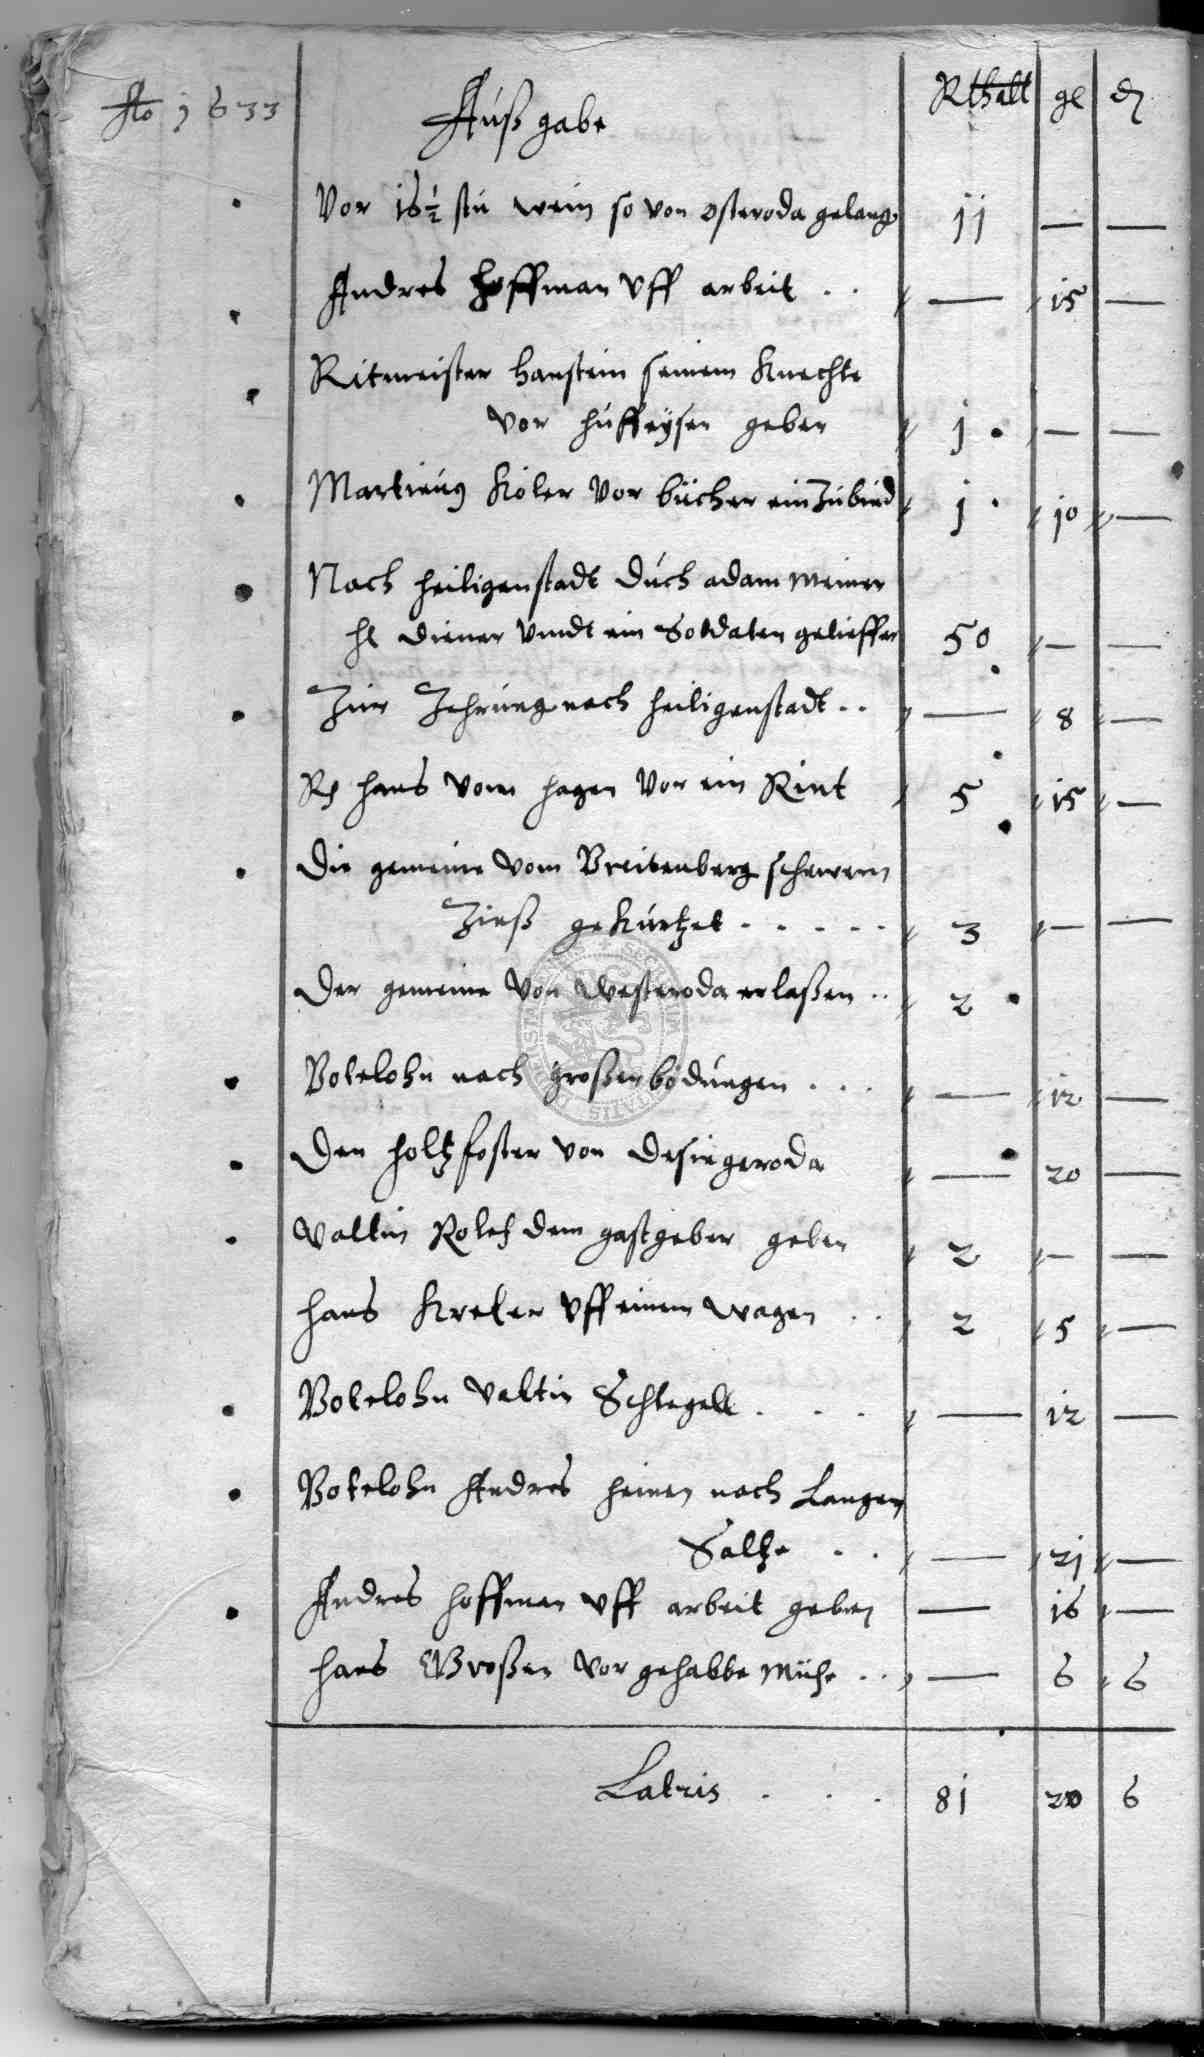 Ao 1633
Außgabe Rthall gl d
Vor 16½ stü wein so von Osteroda gelang 11 — —
Andres Hoffman Uff arbeit . . — 15 —
Ritmeister Hanstein seinem Knechte
vor huffeysen geben 1 — —
Martinus Köler Vor bücher ein Zubind 1 10 —
Nach heiligenstadt duch adam meiner
hl diener Vndt ein Soldaten gelieffer 50 — —
Zur Zehrung nach heiligenstadt . . — 8 —
hans vom hagen Vor ein Rint 5 15 —
Die gemeine vom Breitenberg schewern
Zinß gekürtzet . . . . . 3 — —
Der gemeine Von Westeroda erlaßen . . 2
Botelohn nach großen bodungen . . . — 12 —
Den holtzfoster von Desingeroda — 20 —
Valtin Rolef dem gastgeber geben 2 — —
hans Kreker Uff einem wagen . . 2 5 —
Botelohn Valtin Schlegell . . . — 12 —
Botelohn Andres heinen nach Langen
Saltze . . — 21 —
Andres hoffman Uff arbeit geben — 16 —
hans Großen vor gehabte mühe . . — 6 6
Latris . . . 81 20 6